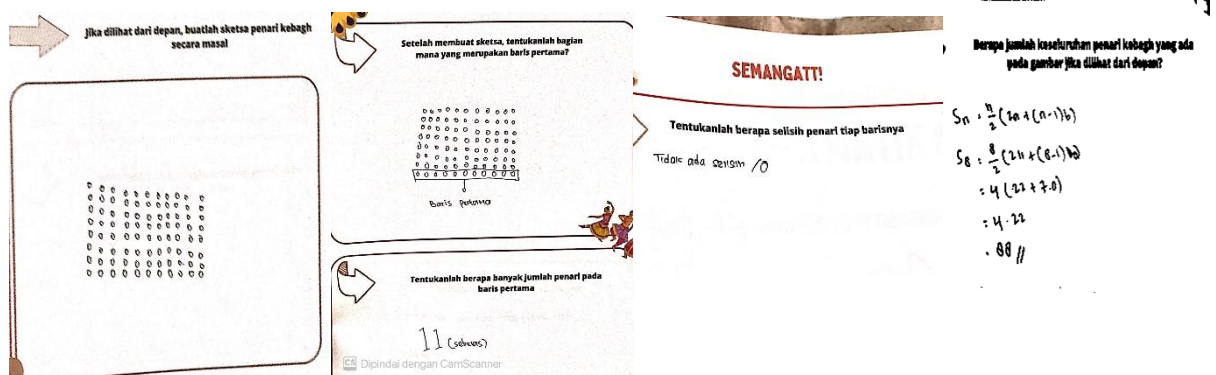 Jika dilihat dari depan, buatlah sketsa penari kebagh
secara masal
Setelah membuat sketsa, tentukanlah bagian
mana yang merupakan baris pertama?
Baris pertama
Tentukanlah berapa banyak jumlah penari pada
baris pertama
11 (sebelas)
CS Dipindai dengan CamScanner
SEMANGATT!
Tentukanlah berapa selisih penari tiap barisnya
Tidak ada selisih / 0
Berapa jumlah keseluruhan penari kebagh yang ada
pada gambar jika dilihat dari depan?
Sn = n/2 (2a + (n-1) b)
S8 = 8/2 (2.11 + (8-1)
= 4 (22 + 7.0)
= 4 . 22
= 88 //